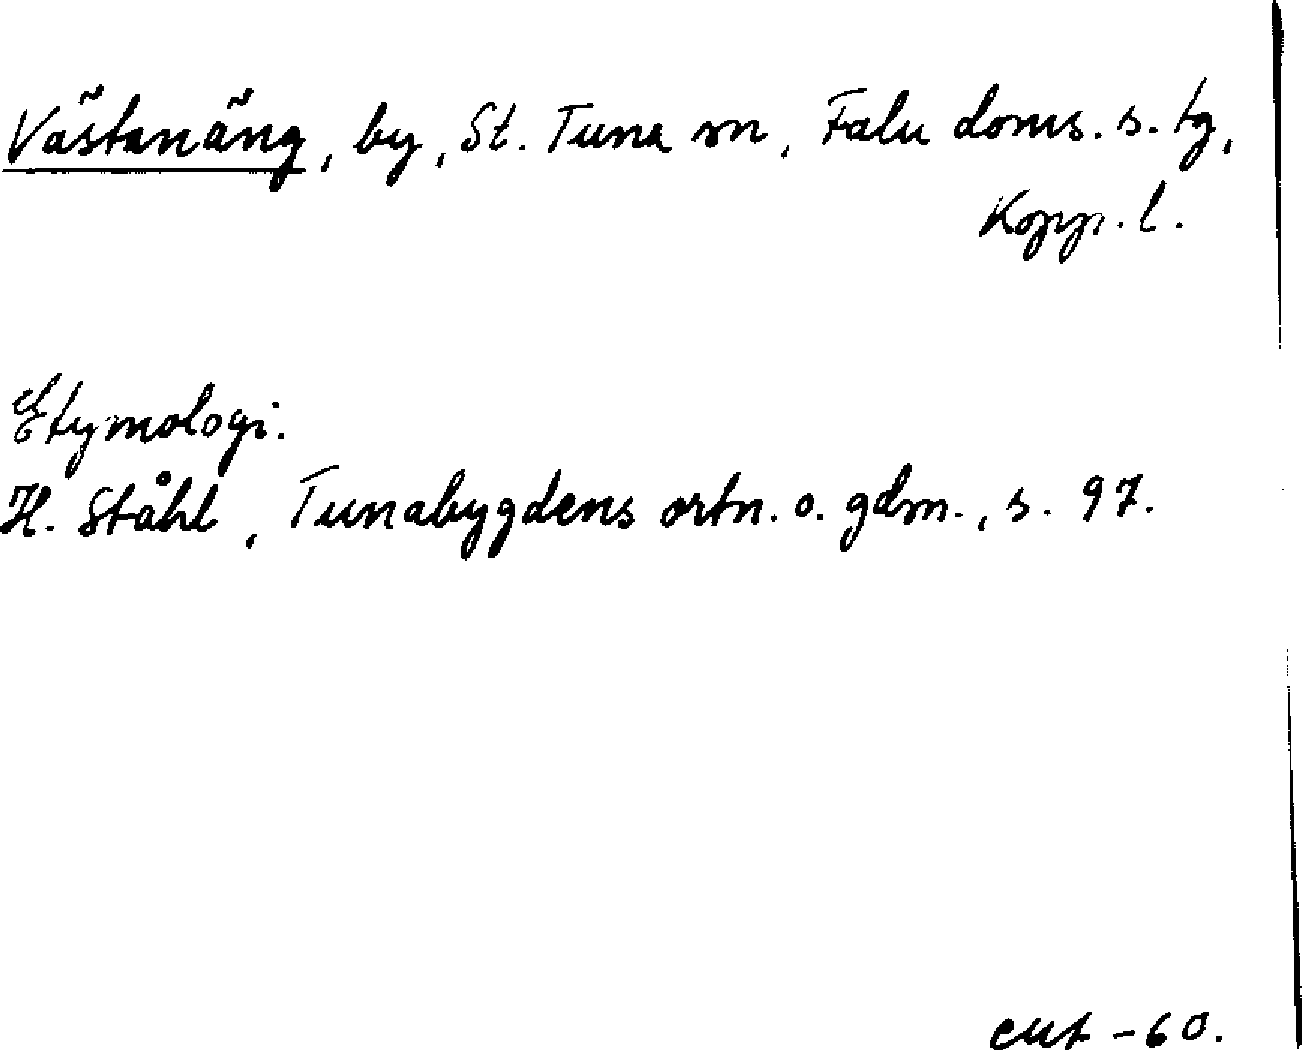 Västanäng, by, St. Tuna sn, Falu doms. s. tg,
Kopp. l.
Etymologi.
H. Ståhl, Tunabygdens ortn. o. gdm., s. 97.
-60.